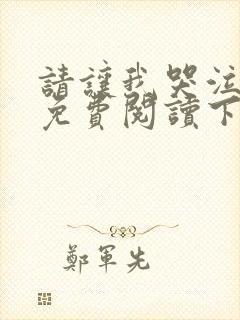 請讓我哭泣
免費閱讀下
鄭軍先